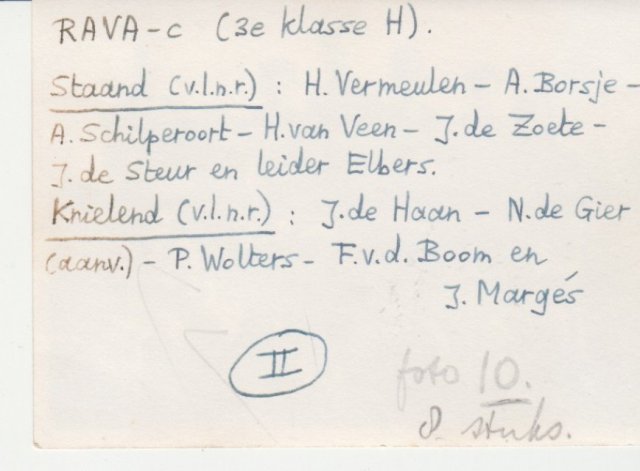 RAVA-c (3e klasse H).
Staand (v.l.n.r.) : H. Vermeulen - A. Borsje -
A. Schilperoort - H. van Veen - J. de Zoete -
J. de Steur en leider Elbers.
Knielend (v.l.n.r.) : J. de Haan - N. de Gier
(aanv.) - P. Wolters - F.v.d. Boom en
J. Margés
II
foto 10.
8 stuks.